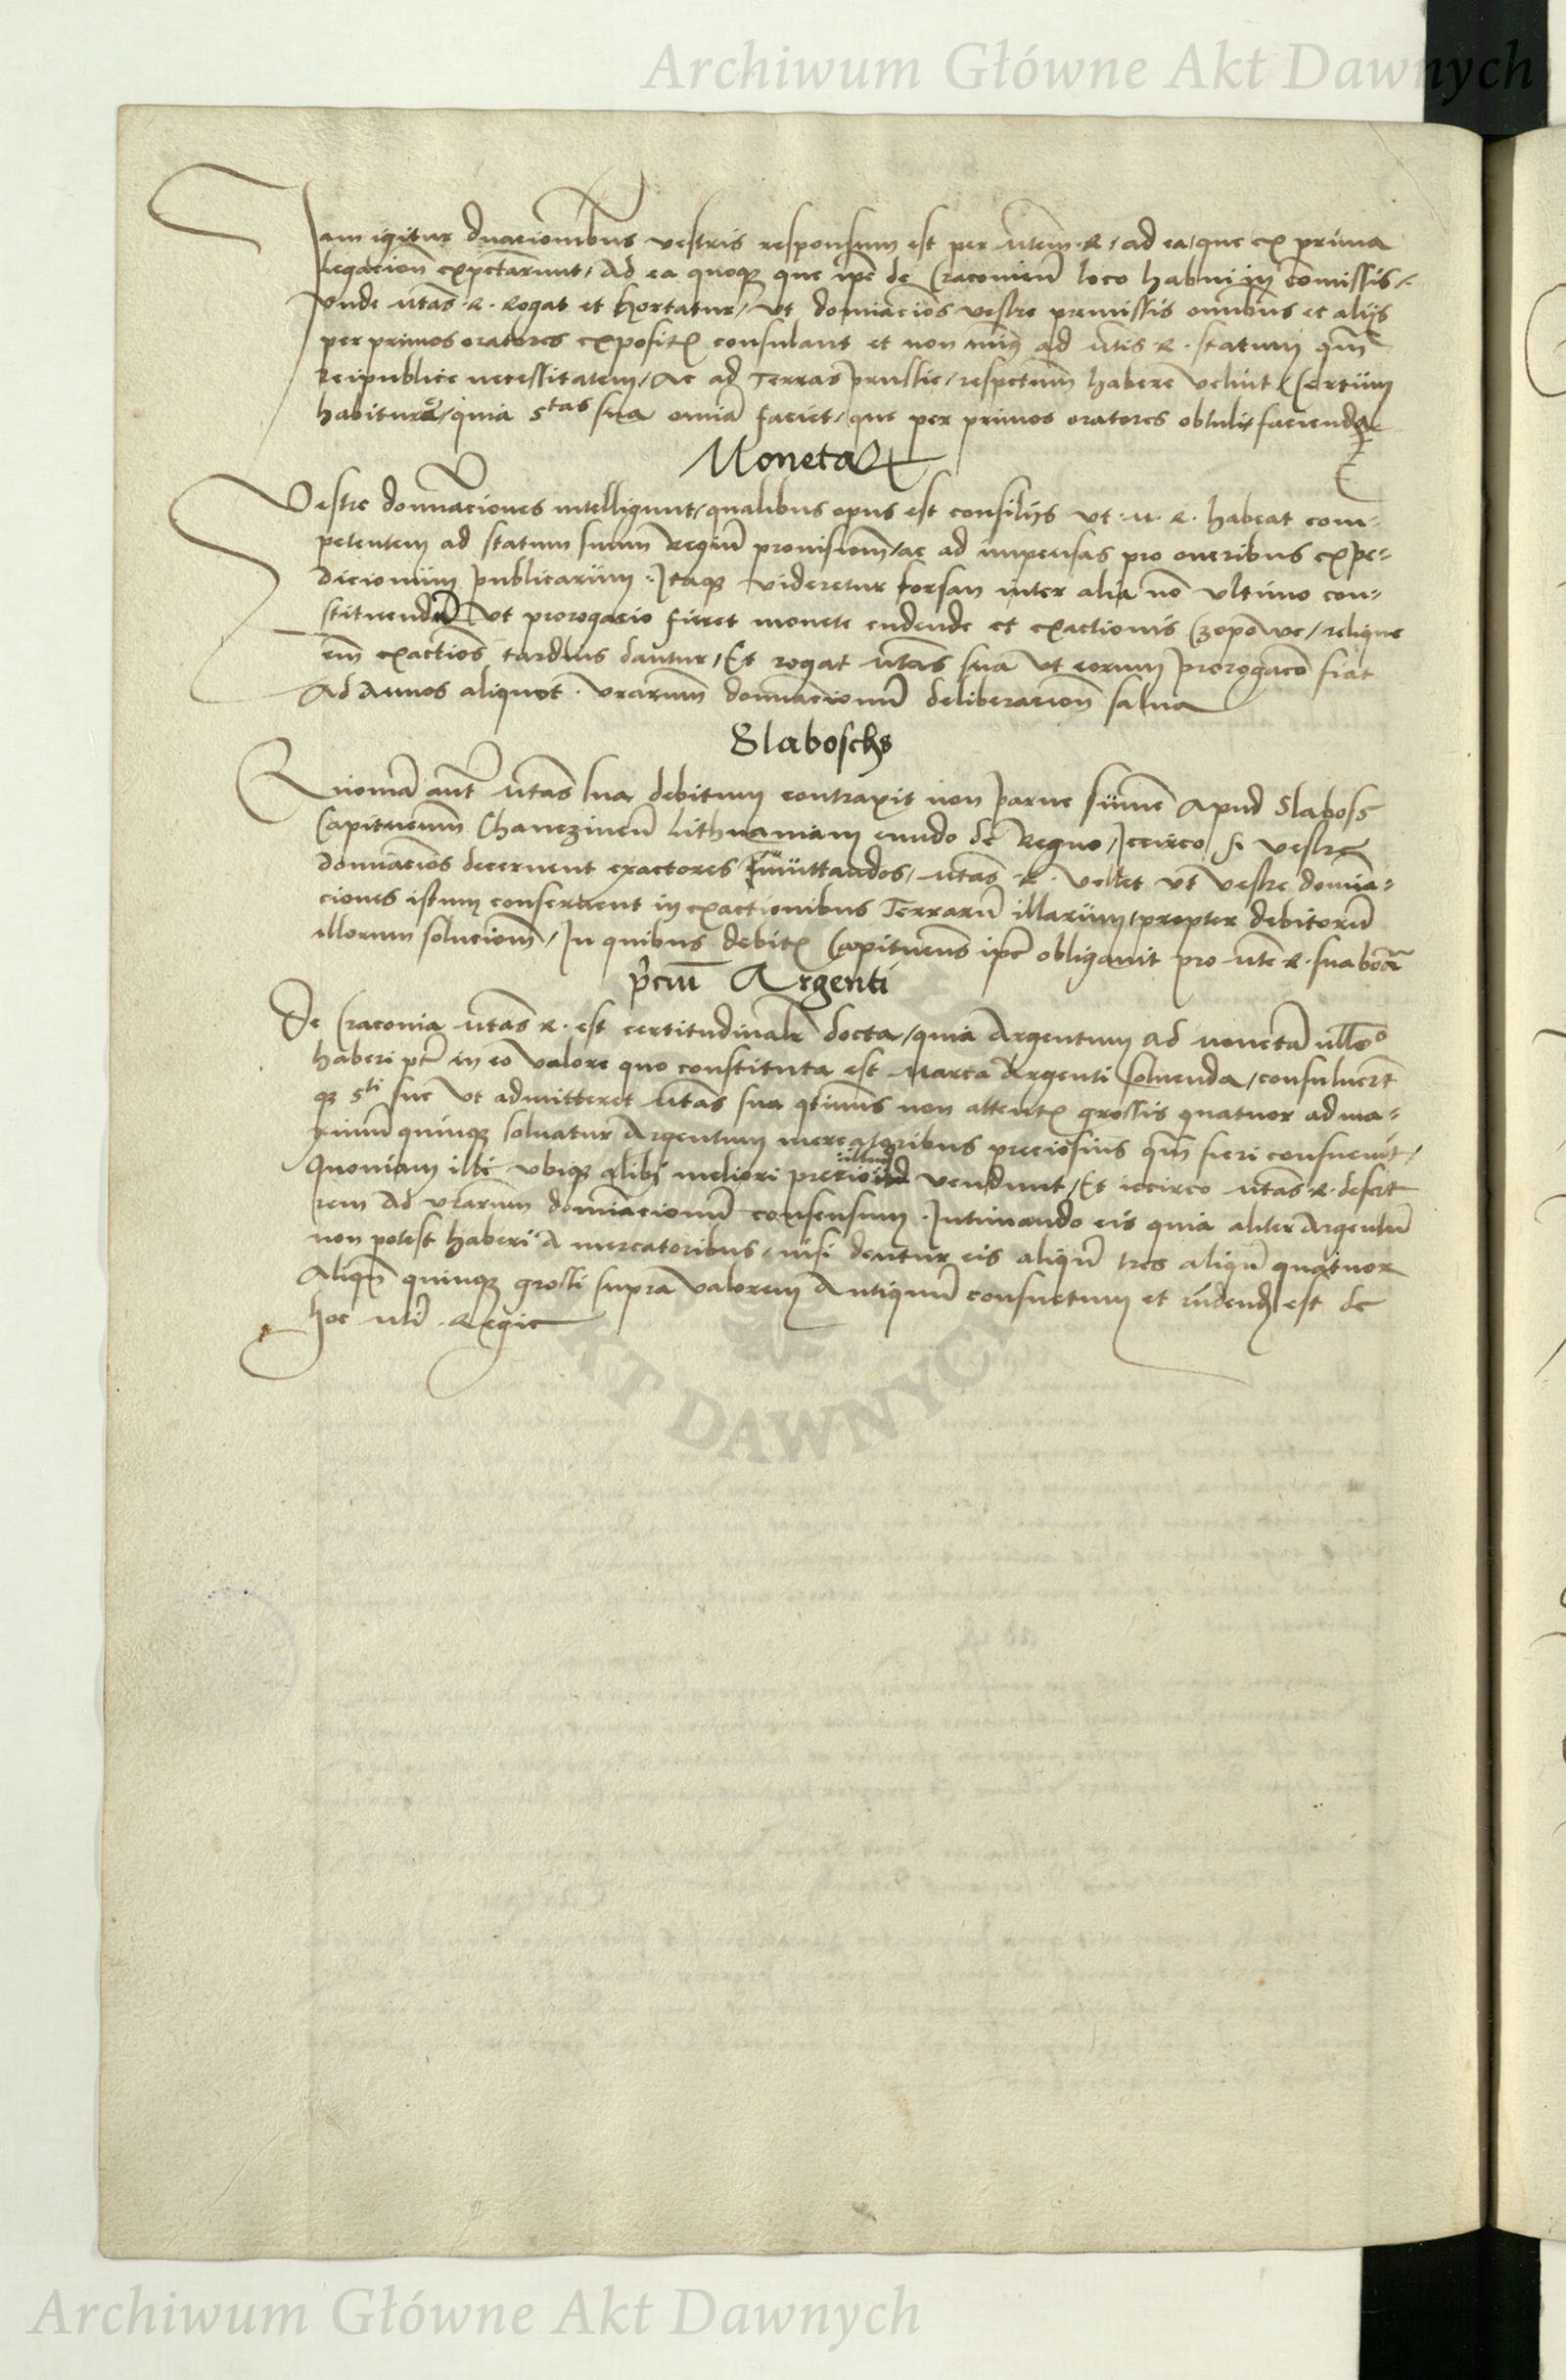 Archiwum Główne Akt Dawnych
Jam igitur dnacionibus vestris responsum est per mtem R. / ad ea / que ex prima
legacion expectarunt / Ad ea quoque que ipe de Craconien loco habui in comissis /
Unde mtas R. Rogat et hortatur / ut dominacios vestre premissis omnibus et alijs
per primos oratores exposit consulant et non minus ad mtis R. statum qm
Reipublice necessitatem / Ac ad Terras prussie / respectum habere velint Certum
habiture / quia Stas sua omnia faciet / que per primos oratores obtulit faciend
Moneta
Vestre dominaciones intelligunt / qualibus opus est consilijs ut m. R. habeat com-
petentem ad statum suum Regium provisionem / ac ad impensas pro oneribus expe-
dicionum publicarum. Itaque videretur forsan inter alia no ultimo con-
stituend Ut prorogacio fieret monete cudende et exactionis Czopowe / relique
em exactios tardius dantur / Et rogat mtas sua ut eorum prorogaco fiat
Ad Annos aliquot. vrarum dominacionum deliberacion salva
Slabosch
Quoniam aut mtas sua debitum contraxit non parve summe Apud Slaboss
Capitneum Chanczinen Lithuaniam eundo de Regno / Iccirco si vestre
dominacios decernent exactores mittandos / mtas R. vellet ut vestre domina-
ciones istum conservent in exactionibus Terrarum illarum / propter debitorum
illorum solucionem / In quibus debit Capitneus ipe obligavit pro mte R. sua bona
pciu Argenti
De Craconia mtas R. est certitudinalr docta / quia Argentum ad monetam nullo
haberi pt in eo valore quo constituta est Marca Argenti solvenda / consulueruntt
que Sti sue ut admitteret mtas sua qtinus non attent grossis quatuor ad ma-
ximum quinque solvatur Argentum mercatoribus preciosius qm fieri consuevit /
Quoniam illi ubique alibi meliori precio illud vendunt / Et iccirco mtas R. defert
rem Ad vrarum dominacionum consensum. Intimando eis quia aliter Argentum
non potest haberi A mercatoribus / nisi dentur eis aliqn tres aliqn quatuor
Aliqn quinque grossi supra valorem Antiquum consuetum et rndend est de
hoc mti Regie
AKT DAWNYCH
Archiwum Główne Akt Dawnych